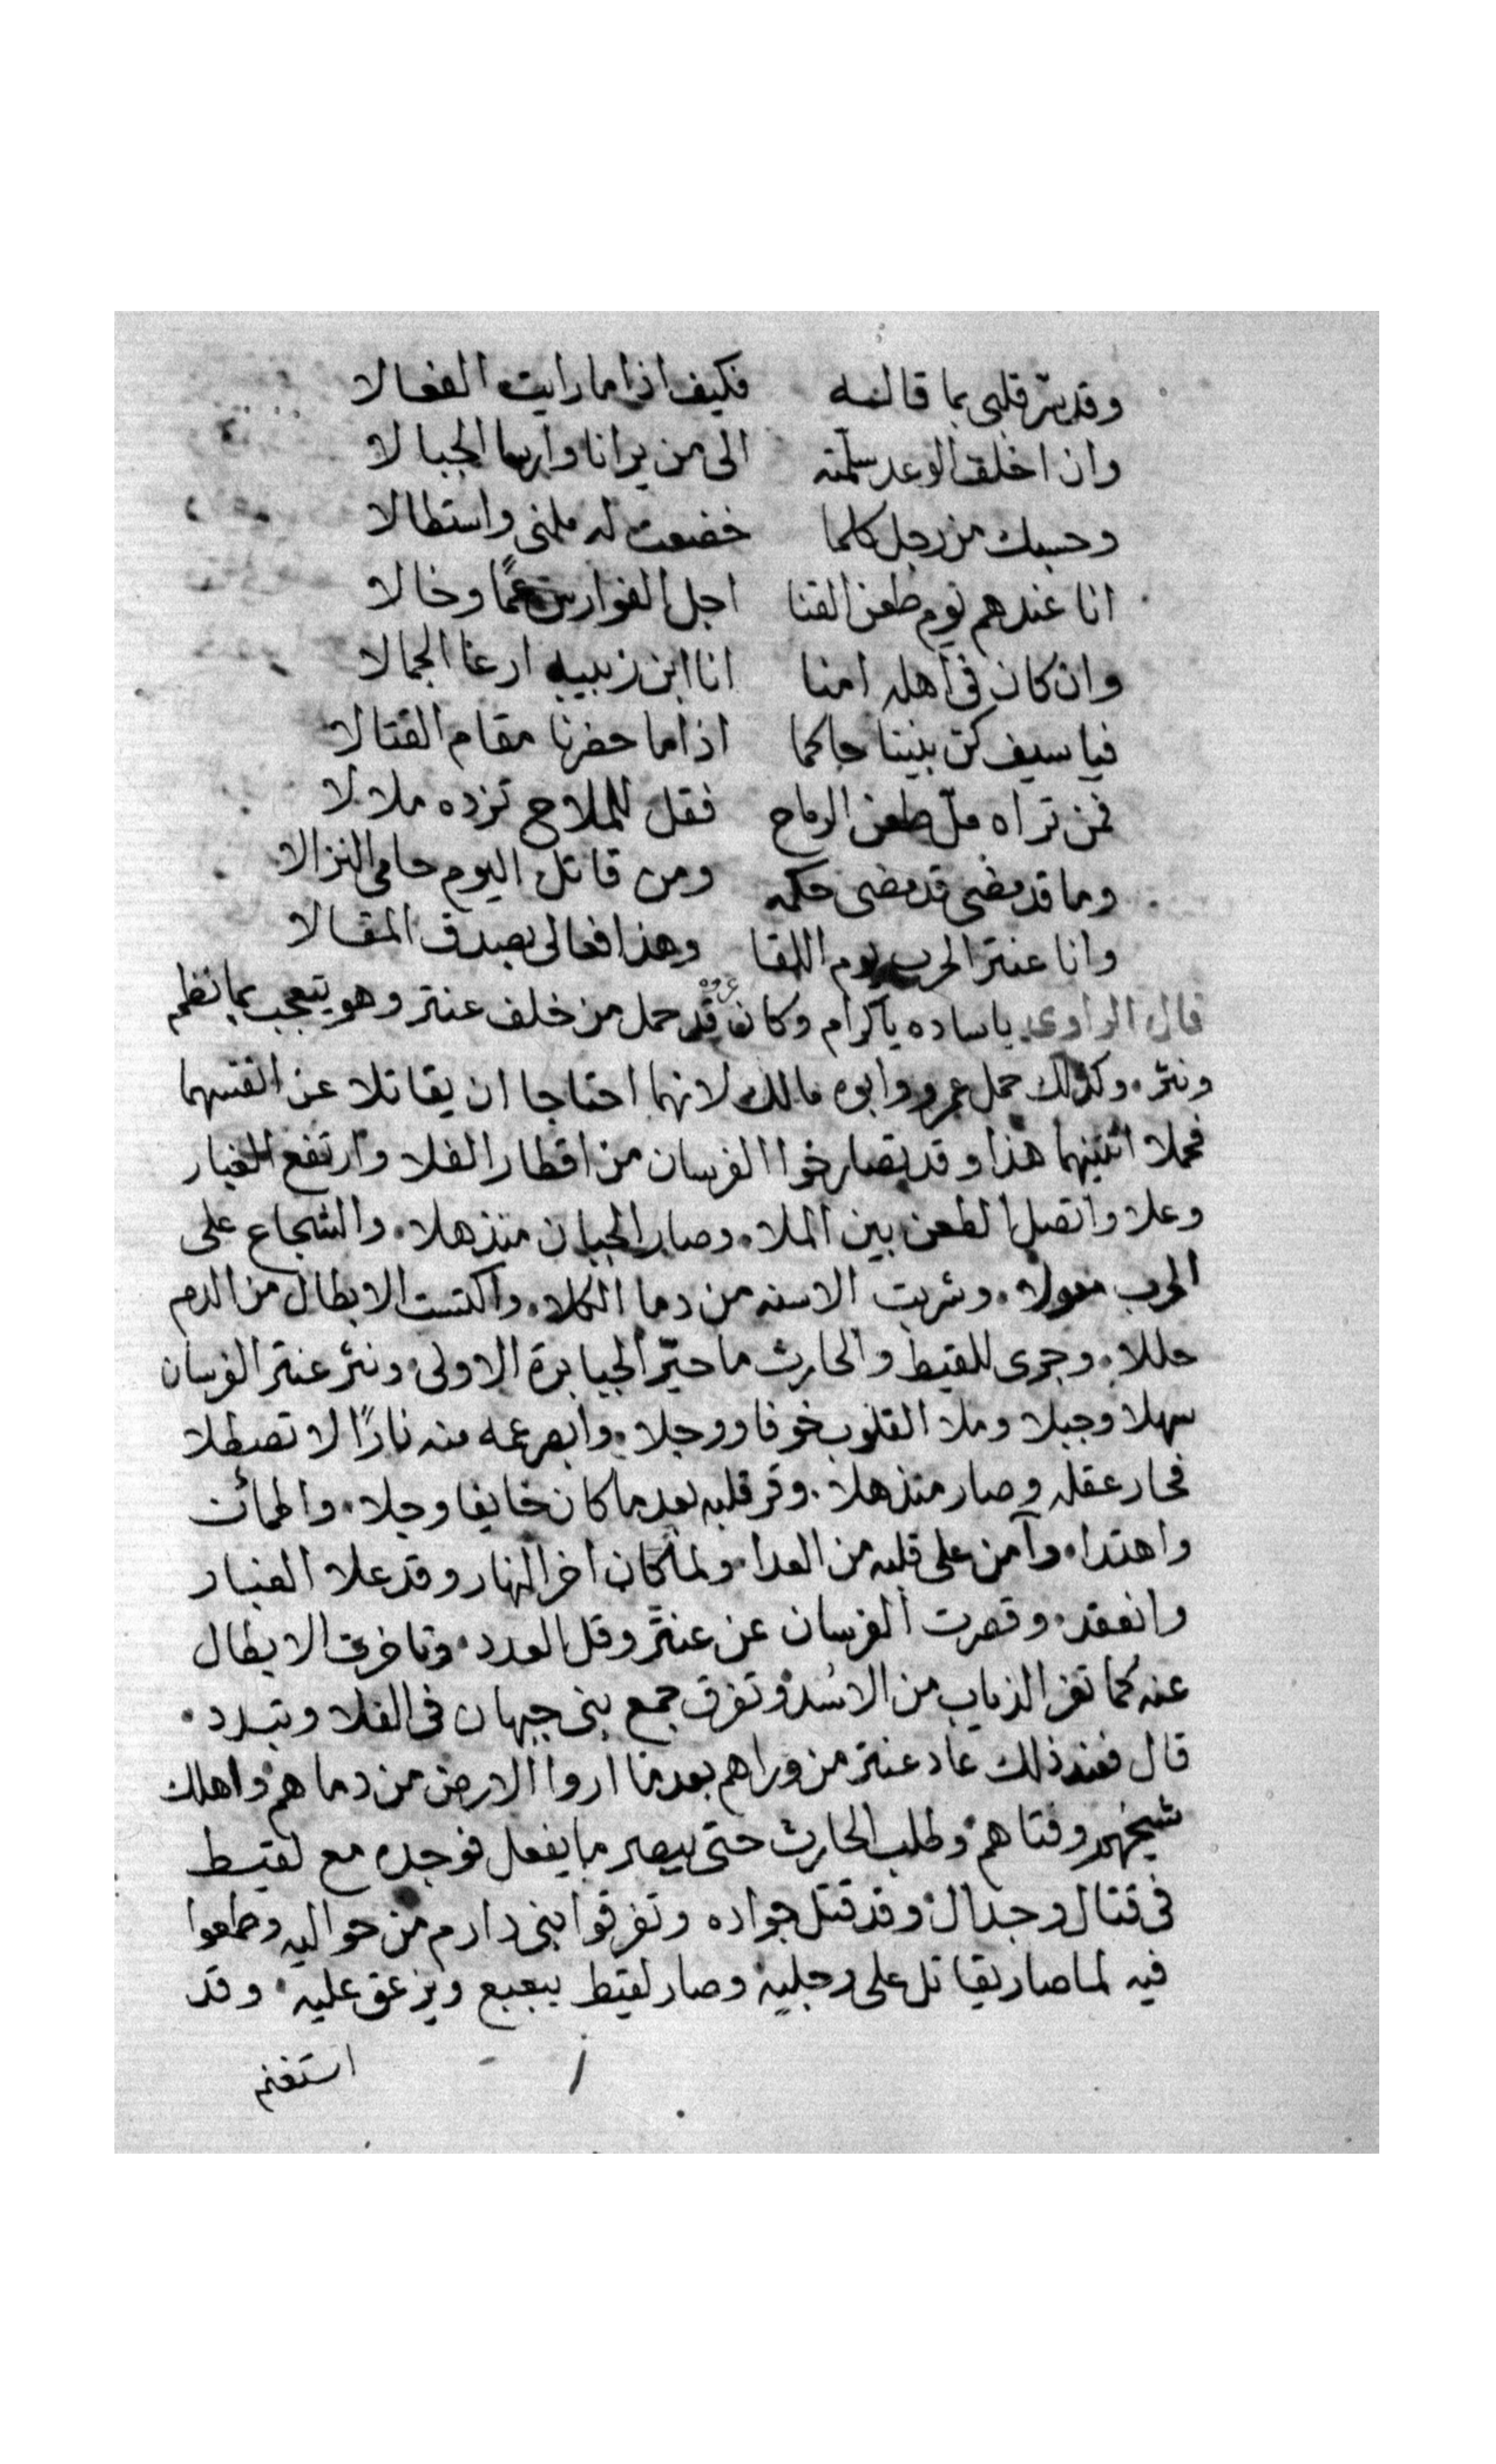 وقد سرّ قلبى بما قاله فكيف اذا ما رايت الفعالا
وان اخلف الوعد سلمته الى من يرانا وارسا الجبالا
وحسبك من رجل كلما خضعت له ملنى واستطالا
انا عندهم يوم طعن القنا اجل الفوارس عمًا وخالا
وان كان فى اهله امنا انا ابن زبيبه ارعا الجمالا
فيا سيف كن بيننا حاكما اذا ما حضرنا مقام القتالا
فمن تراه ملّ طعن الرماح فقل للملاح تزده ملالا
وما قد مضى قد مضى حكمه ومن قاتل اليوم حامى النزالا
وانا عنتر الحرب يوم اللقا وهذا فعالى يصدق المقالا
قال الراوى ياساده ياكرام وكان عروه قد حمل من خلف عنتر وهو يتعجب بما نظم
ونثر. وكذلك حمل عمرو وابوه مالك لانهما احتاجا ان يقاتلا عن انفسهما
فحملا اثنينهما هذا وقد تصارخوا الفرسان من اقطار الفلا وارتفع الغبار
وعلا واتصل الطعن بين الملا. وصار الجبان منذهلا. والشجاع على
الحرب معولا. وشربت الاسنه من دما الكلا. واكتست الابطال من الدم
حللا. وجرى للقيط والحارث ما حيّر الجبابرة الاولى. ونثر عنتر الفرسان
سهلا وجبلا وملا القلوب خوفا ووجلا. وابصر عمه منه نارًا لا تصطلا
فحار عقله وصار منذهلا. وقر قلبه بعد ما كان خايفا وجلا. واطمأنت
واهتدا. وآمن على قلبه من العدا. ولما كان اخر النهار وقد علا الغبار
وانعقد. وقصرت الفرسان عن عنتر وقل العدد. وتاخرت الابطال
عنه كما تفر الذياب من الاسُد. وتفرق جمع بنى جيهان فى الفلا وتبدد.
قال فعند ذلك عاد عنتر من وراهم بعد ما اروا الارض من دماهم. واهلك
شيخهم وفتاهم. وطلب الحارث حتى يبصر ما يفعل فوجده مع لقيط
فى قتال وجدال. وقد قتل جواده وتفرقوا بنى دارم من حواليه وطمعوا
فيه لما صار يقاتل على رجليه. وصار لقيط يبعبع ويزعق عليه. وقد
استغنم